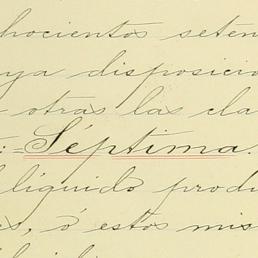 hocientos seten
ya disposicio
otras las cla
:=Séptima.
líquido produ
es, ó estos mis